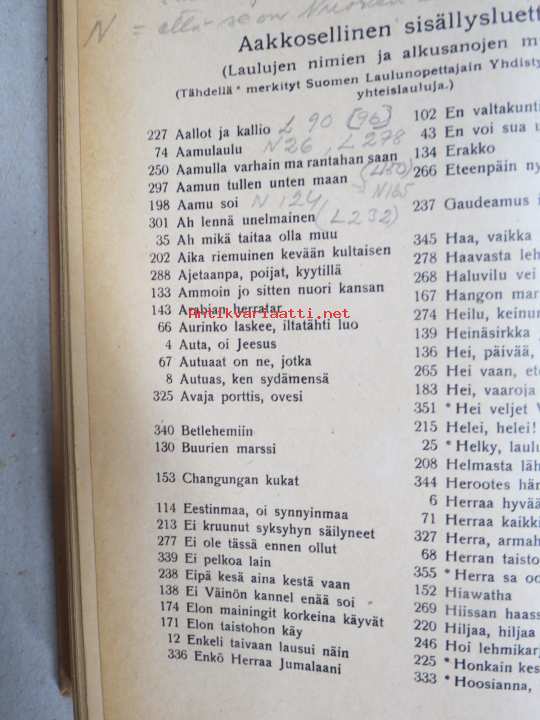 N = että se on Nuorten
Aakkosellinen sisällysluett
(Laulujen nimien ja alkusanojen m
(Tähdellä * merkityt Suomen Laulunopettajain Yhdisty
yhteislauluja.)
227 Aallot ja kallio L 90 (96)
74 Aamulaulu N26, L278
250 Aamulla varhain ma rantahan saan
297 Aamun tullen unten maan (L180)
198 Aamu soi N 124, N165
301 Ah lennä unelmainen (L232)
35 Ah mikä taitaa olla muu
202 Aika riemuinen kevään kultaisen
288 Ajetaanpa, poijat, kyytillä
133 Ammoin jo sitten nuori kansan
143 Arabian herratar
Antikvariaatti.net
66 Aurinko laskee, iltatähti luo
4 Auta, oi Jeesus
67 Autuaat on ne, jotka
8 Autuas, ken sydämensä
325 Avaja porttis, ovesi
340 Betlehemiin
130 Buurien marssi
153 Changungan kukat
114 Eestinmaa, oi synnyinmaa
213 Ei kruunut syksyhyn säilyneet
277 Ei ole tässä ennen ollut
339 Ei pelkoa lain
238 Eipä kesä aina kestä vaan
138 Ei Väinön kannel enää soi
174 Elon mainingit korkeina käyvät
171 Elon taistohon käy
12 Enkeli taivaan lausui näin
336 Enkö Herraa Jumalaani
102 En valtakunti
43 En voi sua u
134 Erakko
266 Eteenpäin ny
237 Gaudeamus i
345 Haa, vaikka
278 Haavasta leh
268 Haluvilu vei
167 Hangon mar
274 Heilu, keinun
139 Heinäsirkka
136 Hei, päivää,
265 Hei vaan, ete
183 Hei, vaaroja
351 * Hei veljet V
215 Helei, helei!
25 * Helky, laulu
208 Helmasta läh
344 Herootes här
6 Herraa hyvää
71 Herraa kaikki
327 Herra, armah
68 Herran taisto
355 * Herra sa oo
152 Hiawatha
269 Hiissan haass
220 Hiljaa, hiljaa
246 Hoi lehmikarj
225 * Honkain kes
333 * Hoosianna,